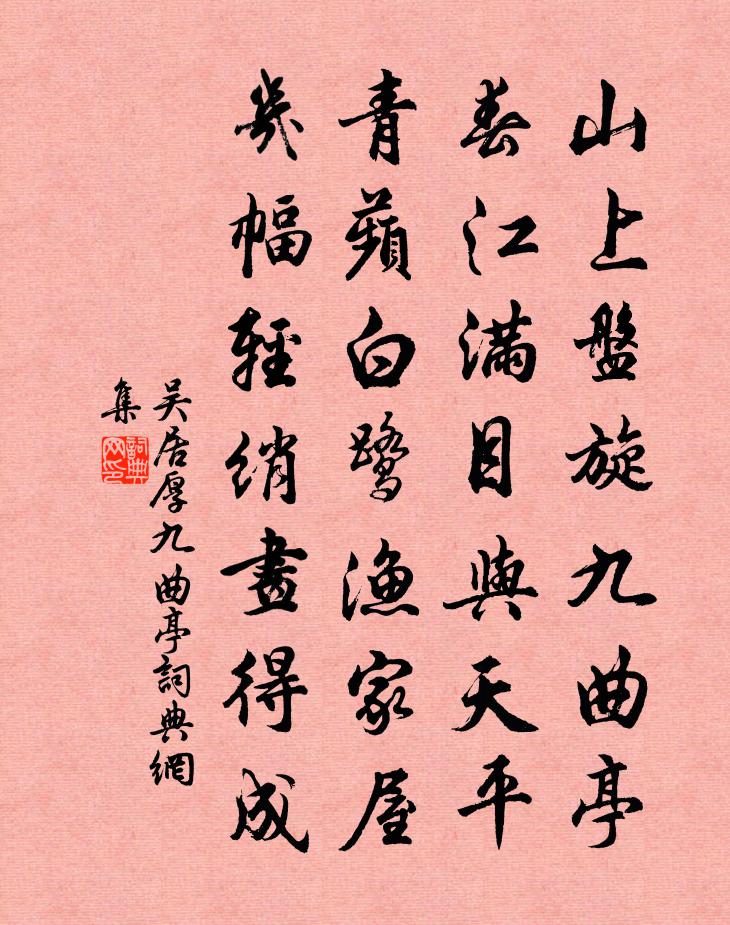 山上盤旋九曲亭
春江滿目與天平
青蘋白鷺漁家屋
幾幅輕綃畫得成
吳居厚九曲亭詞典網
集
詞典
网印